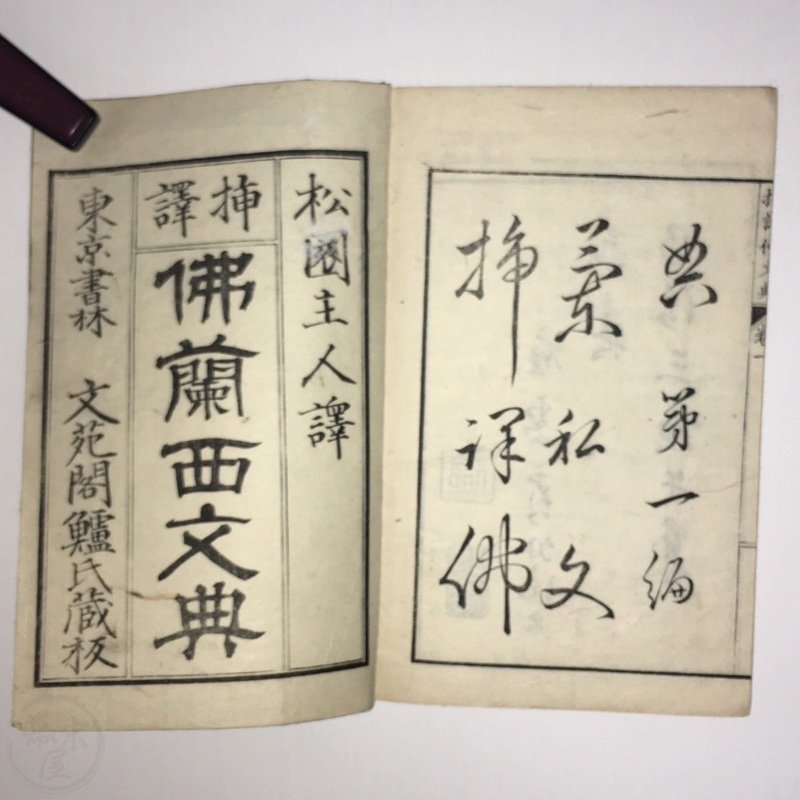 松園主人譯
挿譯
佛蘭西文典
東京書林 文苑閣鱸氏蔵板
挿譯佛
蘭私文
典第一編